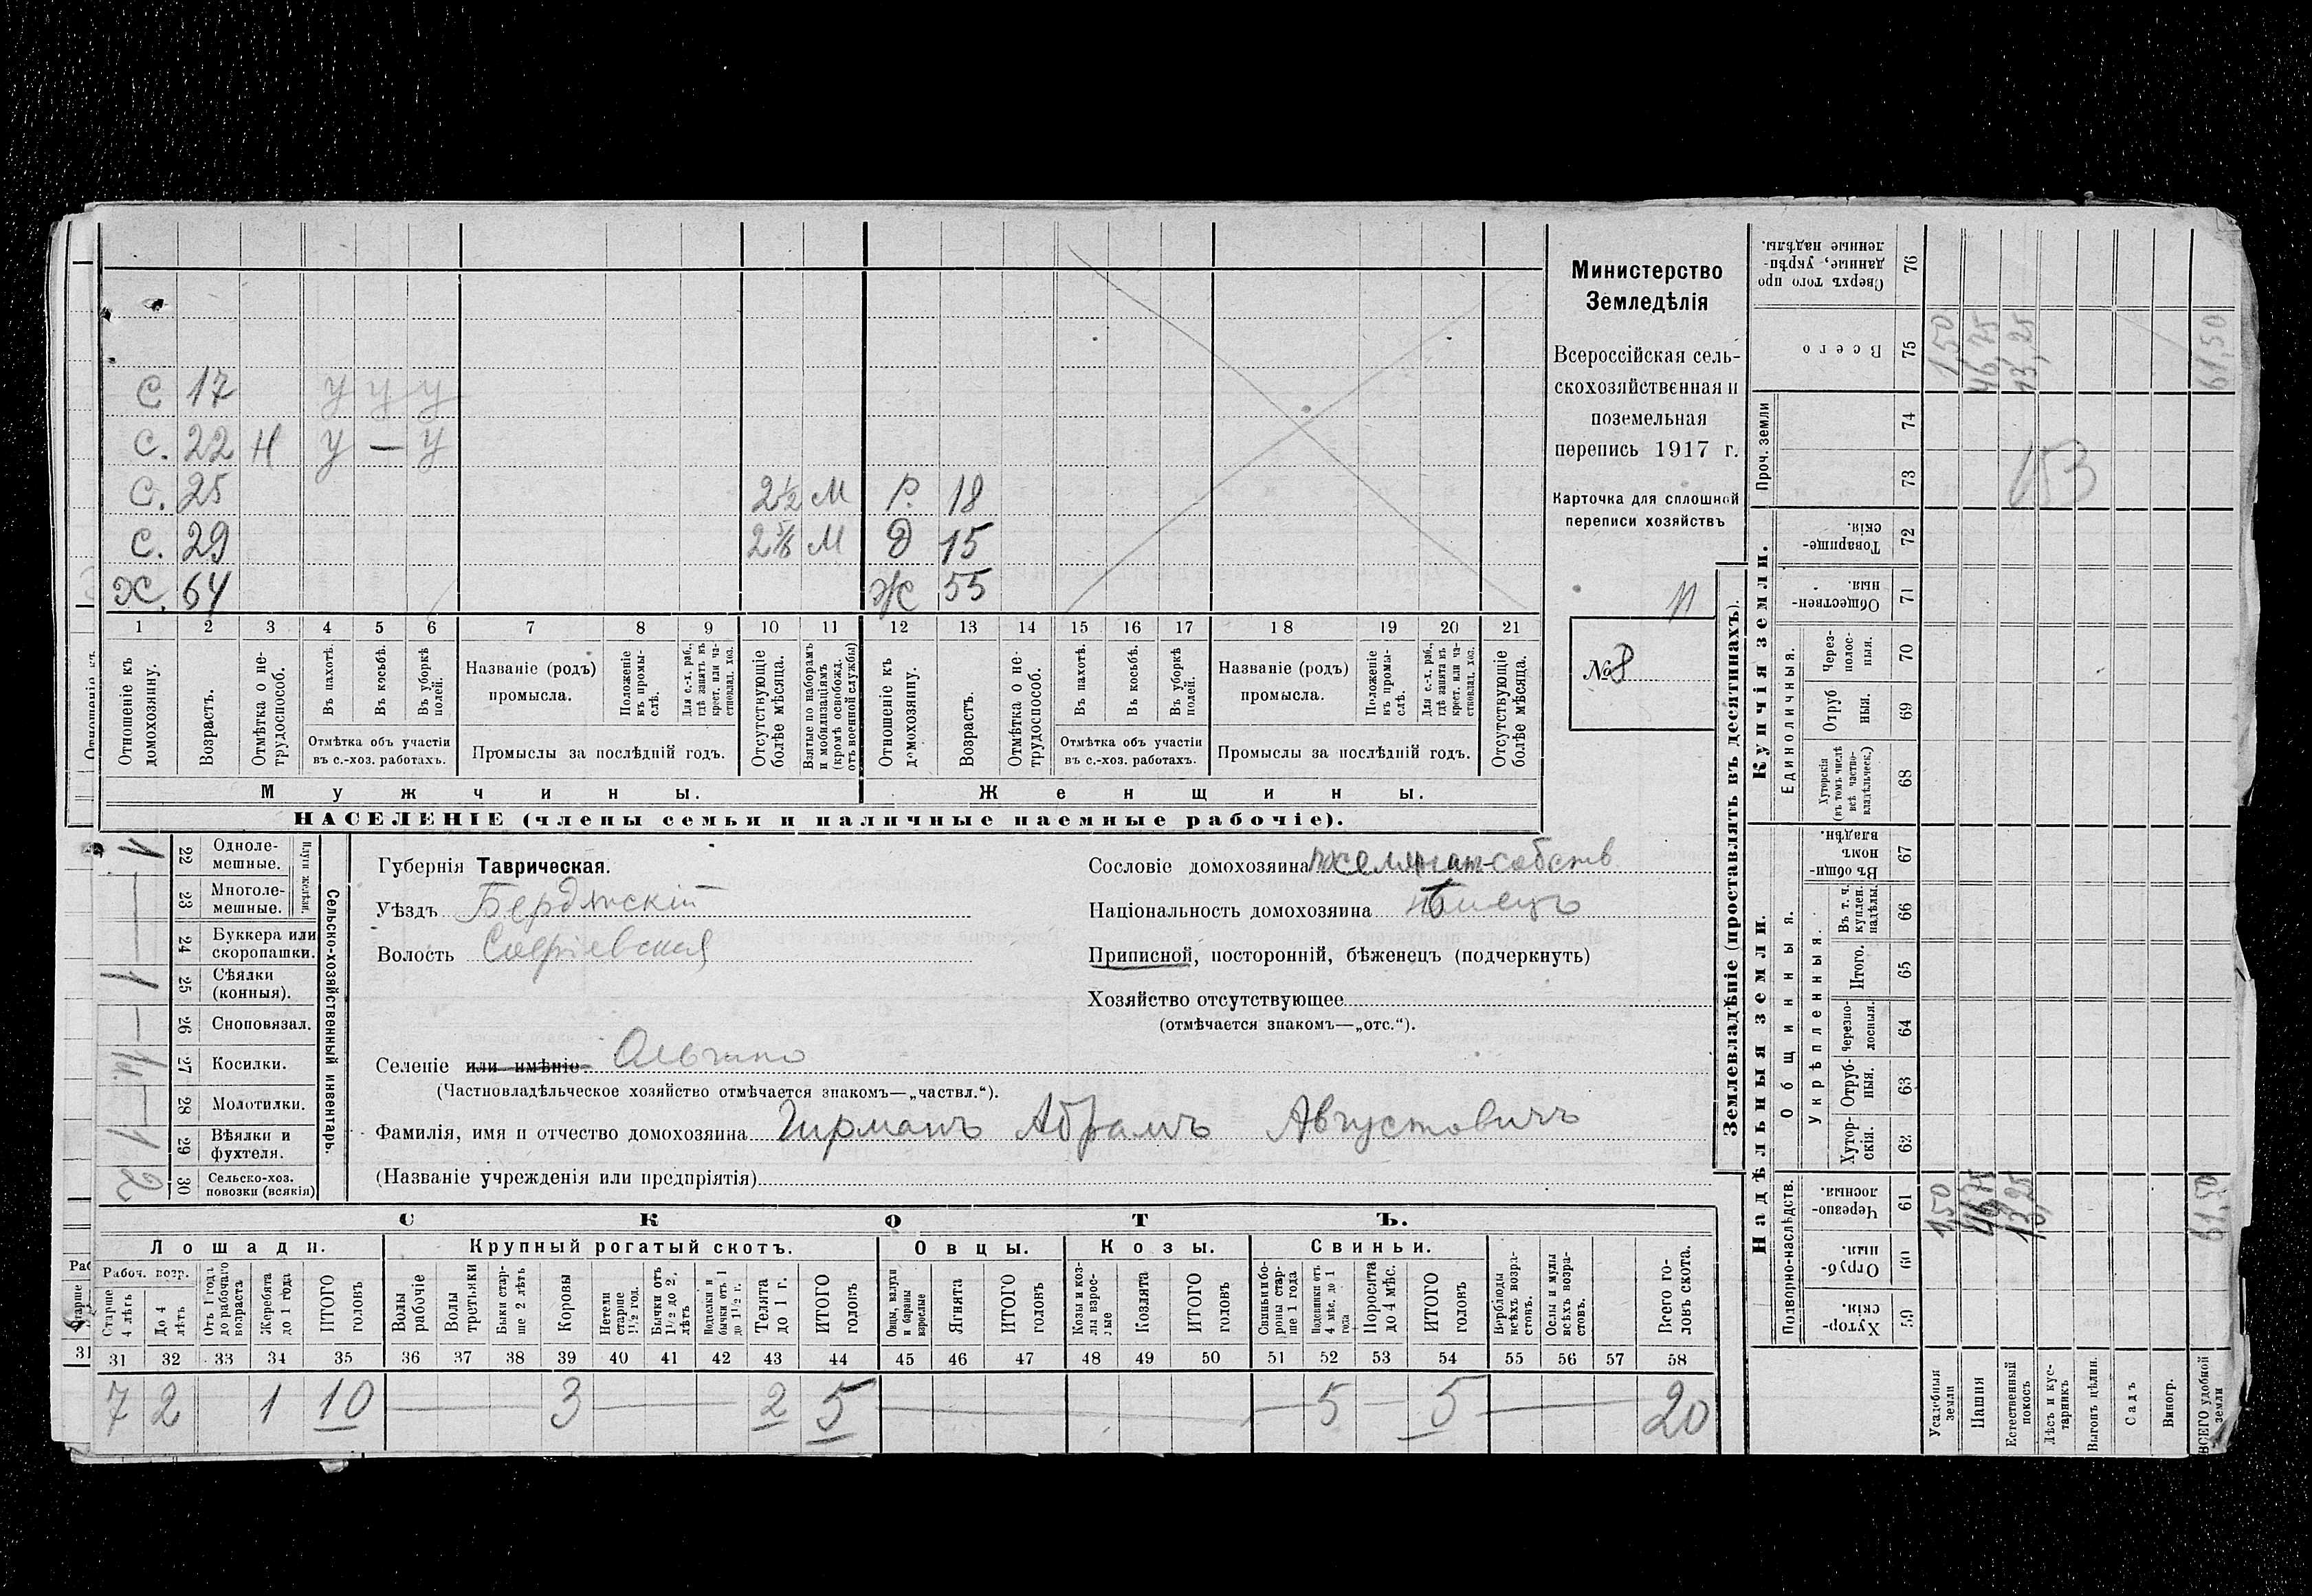 Министерство
Земледѣлія
Всероссійская сель-
скохозяйственная и
поземельная
перепись 1917 г.
Карточка для сплошной
переписи хозяйствъ
11
№ 8
С 17 У У У
С. 22 Н У — У
С. 25 2½ М Р. 18
С. 29 М Д 15
Х. 64 Ж 55
1 2 3 4 5 6 7 8 9 10 11 12 13 14 15 16 17 18 19 20 21
Отношеніе къ домохозяину.
Возрастъ.
Отмѣтка о не-трудоспособ.
Въ пахотѣ.
Въ косьбѣ.
Въ уборкѣ полей.
Отмѣтка объ участіи
въ с.-хоз. работахъ.
Названіе (родъ)
промысла.
Положеніе въ промы-слѣ.
Для с.-х. раб., гдѣ занятъ въ крест. или ча-стновлад. хоз.
Промыслы за послѣдній годъ.
Отсутствующіе болѣе мѣсяца.
Взятые по наборамъ и мобилизаціямъ (кромѣ освобожд. отъ военной службы)
Отношеніе къ домохозяину.
Возрастъ.
Отмѣтка о не-трудоспособ.
Въ пахотѣ.
Въ косьбѣ.
Въ уборкѣ полей.
Отмѣтка объ участіи
въ с.-хоз. работахъ.
Названіе (родъ)
промысла.
Положеніе въ промы-слѣ.
Для с.-х. раб., гдѣ занята въ крест. или ча-стновлад. хоз.
Промыслы за послѣдній годъ.
Отсутствующіе болѣе мѣсяца.
Мужчины. Женщины.
НАСЕЛЕНІЕ (члены семьи и наличные наемные рабочіе).
Сельско-хозяйственный инвентарь.
Плуги желѣзн.
1 22 Одноле-мешные.
— 23 Многоле-мешные.
— 24 Буккера или скоропашки.
1 25 Сѣялки (конныя).
— 26 Сноповязал.
27 Косилки.
— 28 Молотилки.
1 29 Вѣялки и фухтеля.
2 30 Сельско-хоз. повозки (всякія)
Губернія Таврическая.
Уѣздъ Бердянскій
Волость
Селеніе или имѣніе
(Частновладѣльческое хозяйство отмѣчается знакомъ—„частвл.“).
Фамилія, имя и отчество домохозяина Гирманъ Абрамъ Августовичъ
(Названіе учрежденія или предпріятія)
Сословіе домохозяина собств
Національность домохозяина нѣмецъ
Приписной, посторонній, бѣженецъ (подчеркнуть)
Хозяйство отсутствующее
(отмѣчается знакомъ—„отс.“).
СКОТЪ.
Лошади. Крупный рогатый скотъ. Овцы. Козы. Свиньи.
Рабоч. возр.
Старше 4 лѣтъ
До 4 лѣтъ
Отъ 1 года до рабочаго возраста
Жеребята до 1 года
ИТОГО головъ
Волы рабочіе
Волы третьяки
Быки стар-ше 2 лѣтъ
Коровы
Нетели старше 1½ год.
Бычки отъ 1½ до 2 лѣтъ
Подтелки и бычки отъ 1 до 1½ г.
Телята до 1 г.
ИТОГО головъ
Овцы, валухи и бараны взрослые
Ягнята
ИТОГО головъ
Козы и коз-лы взрос-лые
Козлята
ИТОГО головъ
Свиньи и бо-ровы стар-ше 1 года
Подсвинки отъ 4 мѣс. до 1 года
Поросята до 4 мѣс.
ИТОГО головъ
Верблюды всѣхъ возра-стовъ.
Ослы и мулы всѣхъ возра-стовъ.
Всего го-ловъ скота.
31 32 33 34 35 36 37 38 39 40 41 42 43 44 45 46 47 48 49 50 51 52 53 54 55 56 57 58
7 2 1 10 — 3 — 2 5 — 5 — 5 — 20
Землевладѣніе (проставлять въ десятинахъ).
Надѣльныя земли.
Подворно-наслѣдств.
Хутор-скія. 59
Отруб-ныя. 60
Черезпо-лосныя. 61
Общинныя.
Укрѣпленныя.
Хутор-скія. 62
Отруб-ныя. 63
Черезпо-лосныя. 64
Итого. 65
Въ т. ч. куплен. надѣлы. 66
Въ общи-номъ владѣн. 67
Купчія земли.
Единоличныя.
Хуторскія (въ томъ числѣ всѣ частно-владѣльческ.) 68
Отруб ныя. 69
Через-полос-ныя. 70
Обществен-ныя. 71
Товарище-скія. 72
Проч. земли
73 74
Всего 75
Сверхъ того про данные, укрѣп-ленные надѣлы. 76
Усадебныя земли 1,50 1,50
Пашня 46,75 46,75
Естественный покосъ 13,25 13,25
Лѣсъ и кус-тарникъ
Выгонъ цѣлин.
Садъ
Виногр.
ВСЕГО удобной земли 61,50 61,50
153